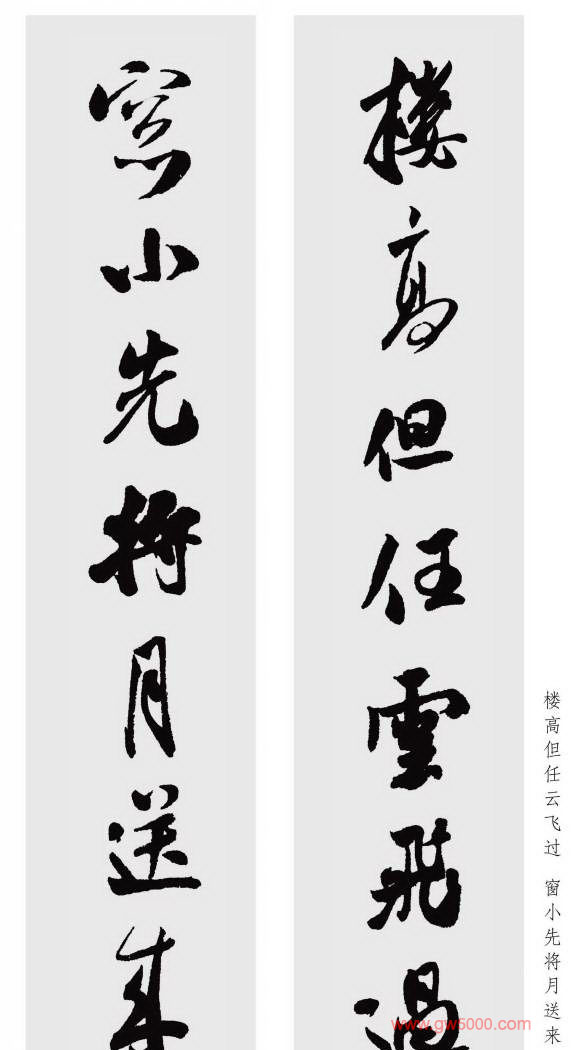 樓高但任雲飛過
窓小先將月送来
楼高但任云飞过 窗小先将月送来
www.gw5000.com